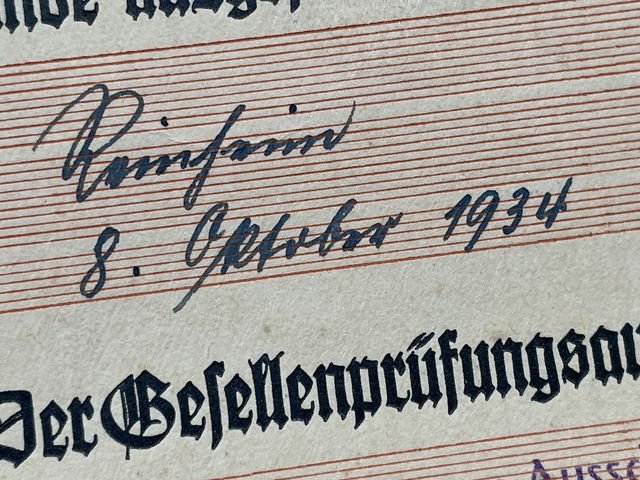 Reinheim
8. Oktober 1934
Der Gesellenprüfungsau
Aussc